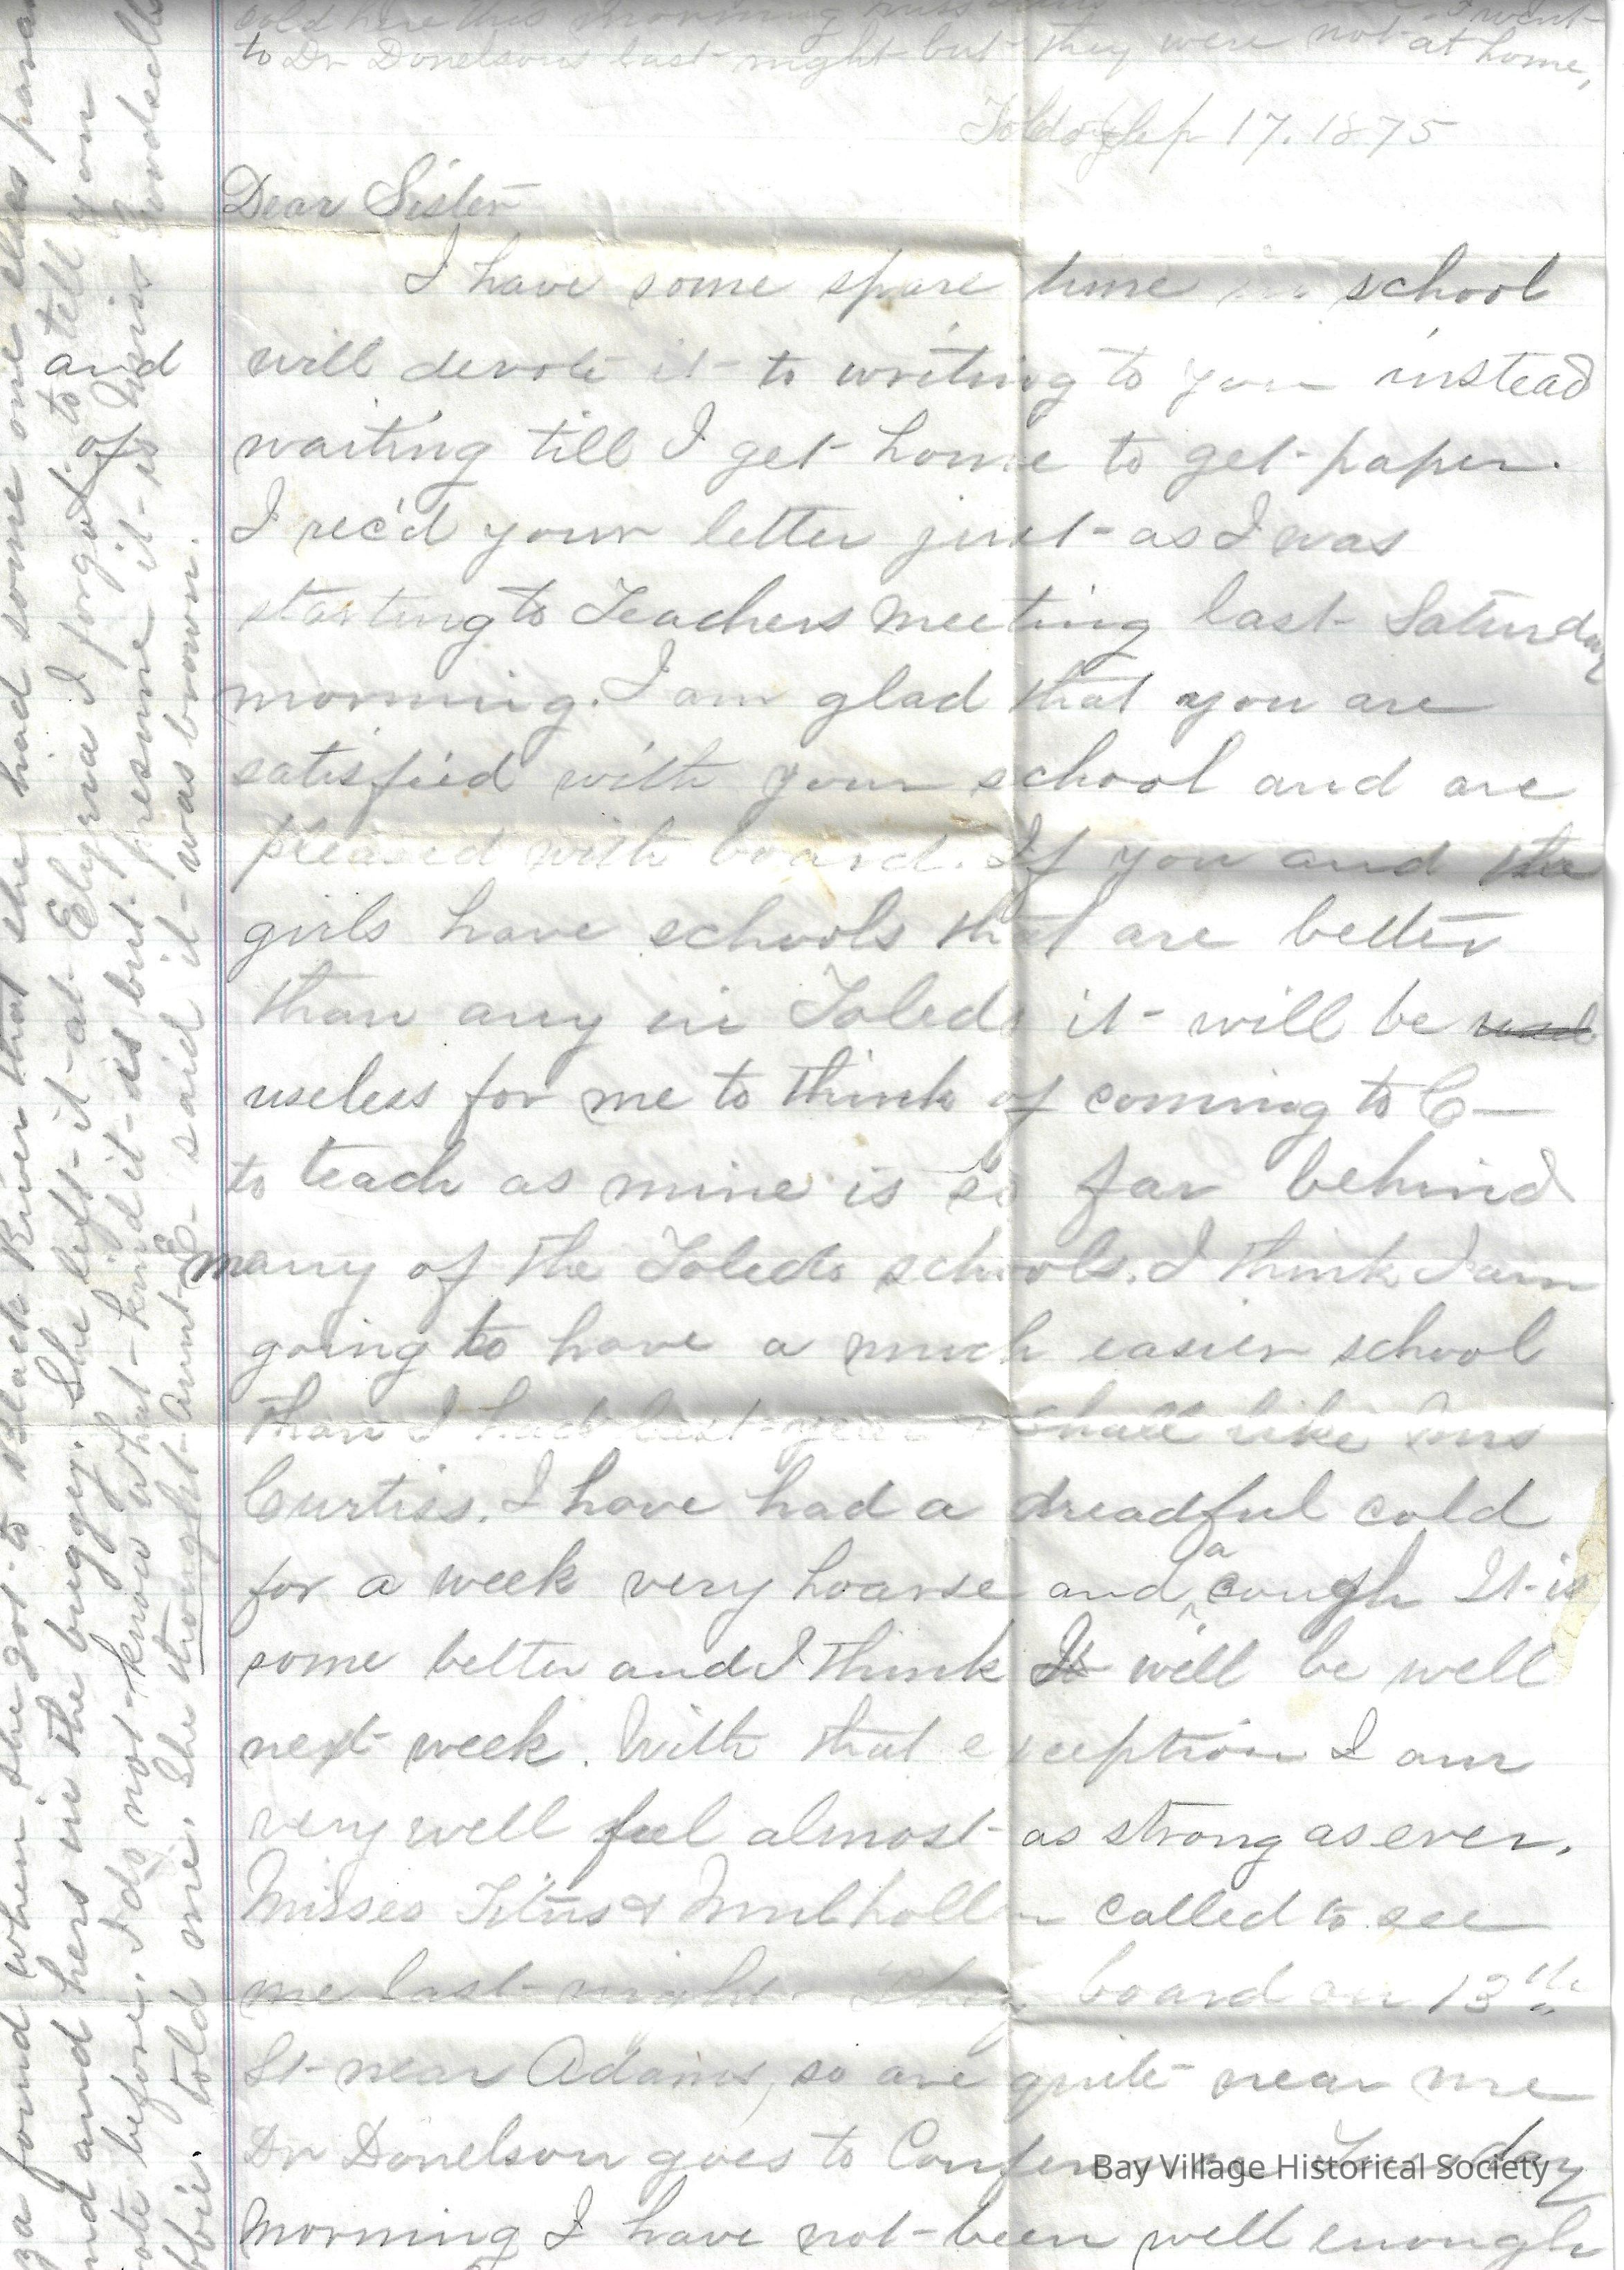 cold here this morning
I went
to Dr Donelsons last night but they were not at home,
Toledo Sep 17. 1875
Dear Sister
I have some spare time in school
and will devote it to writing to you instead
of waiting till I get home to get paper.
I rec'd your letter just as I was
starting to Teachers Meeting last Saturday
morning. I am glad that you are
satisfied with your school and are
pleased with board. If you and the
girls have schools that are better
than any in Toledo it will be used
useless for me to think of coming to C—
to teach as mine is so far behind
many of the Toledo schools. I think I am
going to have a much easier school
than I had last year shall like Mrs
Curtiss. I have had a dreadful cold
for a week very hoarse and a cough It is
some better and I think It will be well
next week. With that exception I am
very well feel almost as strong as ever.
Misses Titus & Mulhollen called to see
me last night. They board on 13th
St near Adams, so are quite near me
Dr Donelson goes to Conference Tuesday
Morning I have not been well enough
found when she got to Black River that she had some one elses
and hers in the buggy. She left it at Elyria I forgot to tell you
before. I do not know what kind it is but presume it is Miss
told me. She thought Aunt E- said it was brown.
Bay Village Historical Society